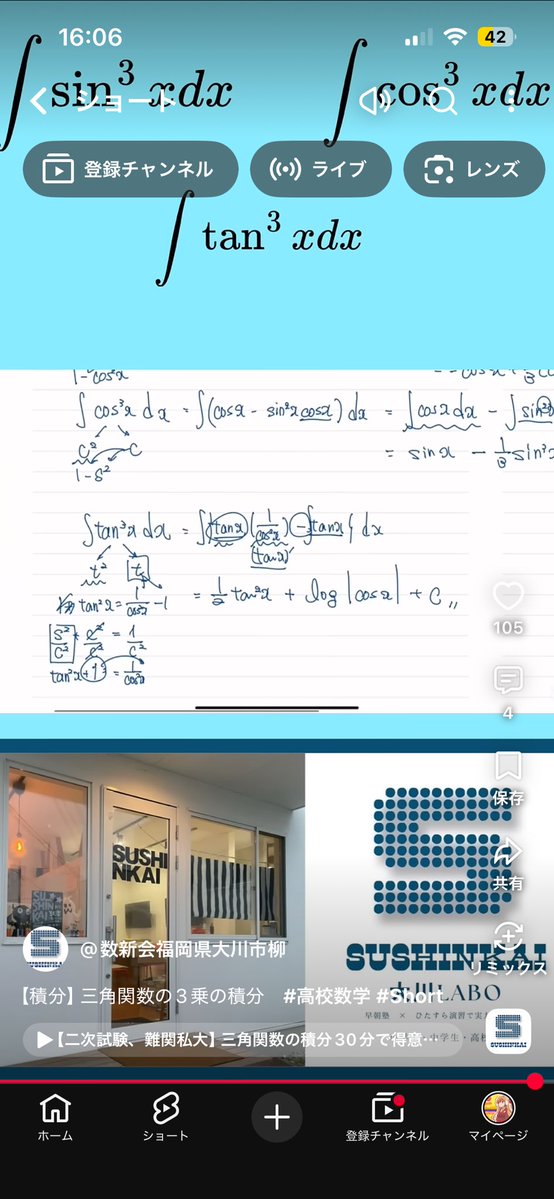 16:06
42
∫ sin³ xdx ∫ cos³ xdx
ショート
登録チャンネル ライブ レンズ
∫ tan³ xdx
1-cos²x
∫cos³x dx = ∫(cosx - sin²x cosx) dx = ∫cosx dx - ∫sin²x
c² c
= sinx - 1/3 sin³x
1-s²
∫tan³x dx = ∫{tanx (1/cos²x) - tanx} dx
(tanx)'
t² t
tan²x = 1/cos²x -1 = 1/2 tan²x + log|cosx| + C
s²/c² + c²/c² = 1/c²
tan²x+1 = 1/cos²x
105
4
保存
共有
リミックス
SUSHI
NKAI
SUSHINKAI
LABO
早朝塾 × ひたすら演習で実
@数新会福岡県大川市柳
【積分】三角関数の３乗の積分 #高校数学 #Short
▶【二次試験、難関私大】三角関数の積分30分で得意…
SUSHINKAI
ホーム ショート 登録チャンネル マイページ